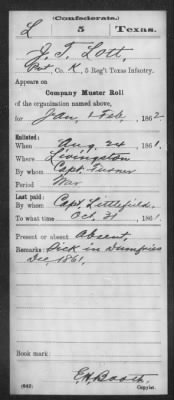 (Confederate.)
L 5 Texas.
J. T. Lott
Pvt, Co. K, 5 Reg't Texas Infantry.
Appears on
Company Muster Roll
of the organization named above,
for Jan, & Feb, 1862.
Enlisted:
When Aug. 24, 1861.
Where Livingston
By whom Capt. Turner
Period War
Last paid:
By whom Capt. Littlefield.
To what time Oct. 31, 1861.
Present or absent Absent,
Remarks: Sick in Dumfries
Dec, 1861.
Book mark:
E. H. Booth
(642) Copyist.